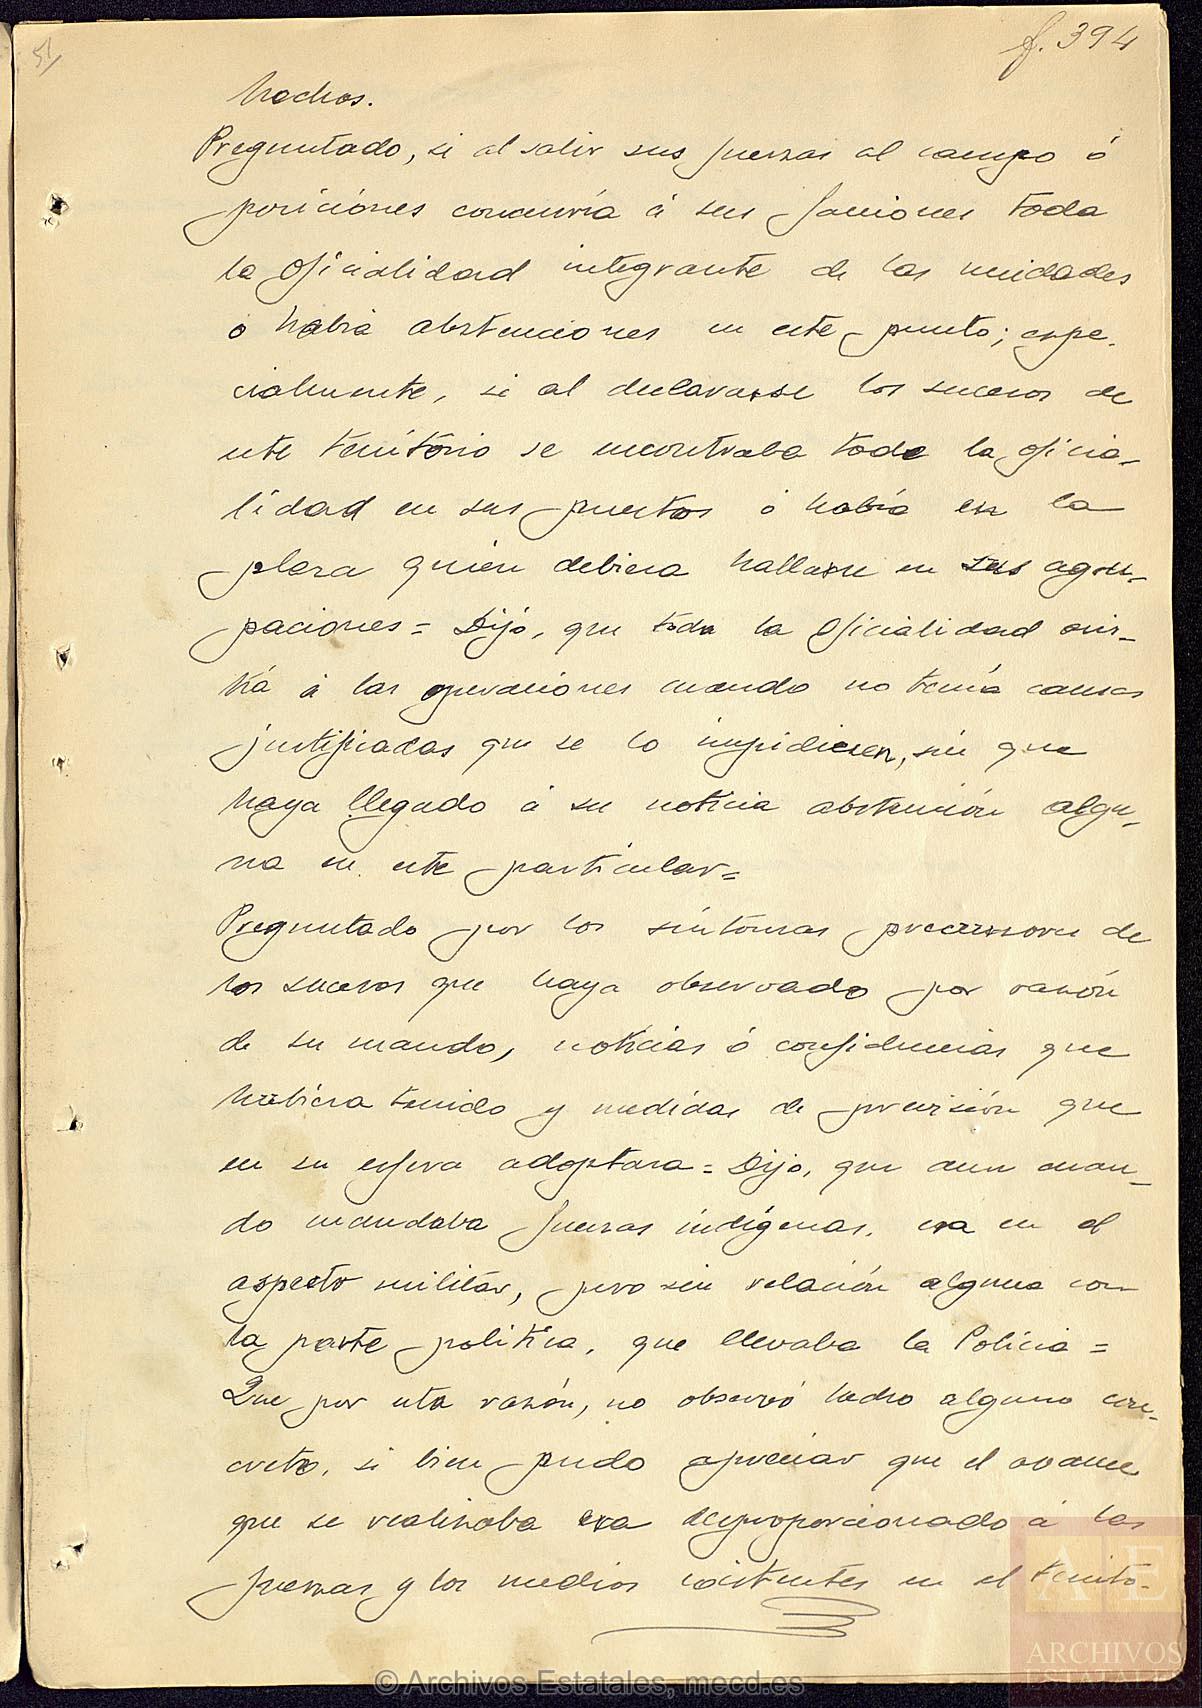 51
f. 394
hechos.
Preguntado, si al salir sus fuerzas al campo ó
posiciónes concurría á sus funciones toda
la Oficialidad integrante de las unidades
o había abstenciones en este punto; espe-
cialmente, si al declararse los sucesos de
este territorio se encontraba toda la oficia-
lidad en sus puestos ó había en la
plaza quien debiera hallarse en sus agru-
paciones = Dijó, que toda la Oficialidad asis-
tía á las operaciones cuando no tenía causas
justificadas que se lo impidiesen, sin que
haya llegado á su noticia abstención algu-
na en este particular =
Preguntado por los síntomas precursores de
los sucesos que haya observado por razón
de su mando, noticias ó confidencias que
hubiera tenido y medidas de previsión que
en su esfera adoptara = Dijo, que aun cuan-
do mandaba fuerzas indígenas, era en el
aspecto militar, pero sin relación alguna con
la parte política, que llevaba la Policia =
Que por esta razón, no observó hecho alguno con-
creto, si bien pudo apreciar que el avance
que se realizaba era desproporcionado á las
fuerzas y los medios existentes en el territo-
© Archivos Estatales, mecd.es
AE
ARCHIVOS
ESTATALES